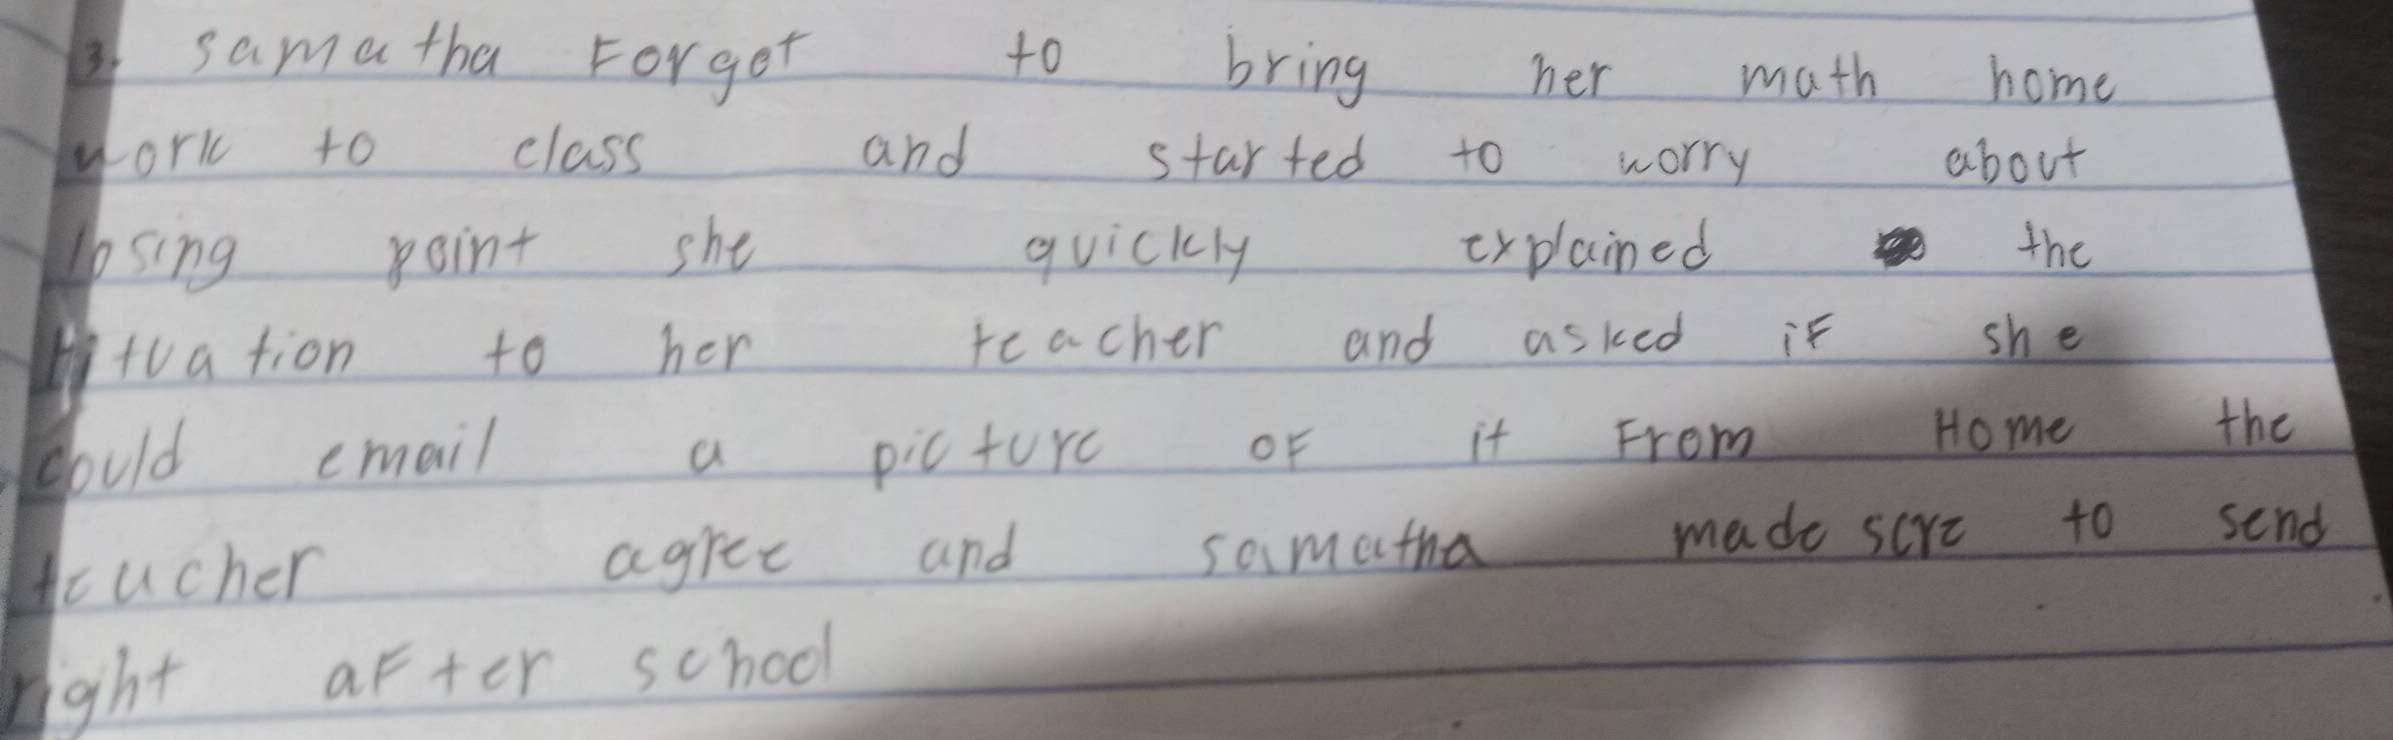 3. samatha Forget to bring her math home
work to class and started to worry about
losing point she quickly explained the
tituation to her teacher and asked if she
could email a picture of it From Home the
teacher agree and samatha made scre to send
right after school